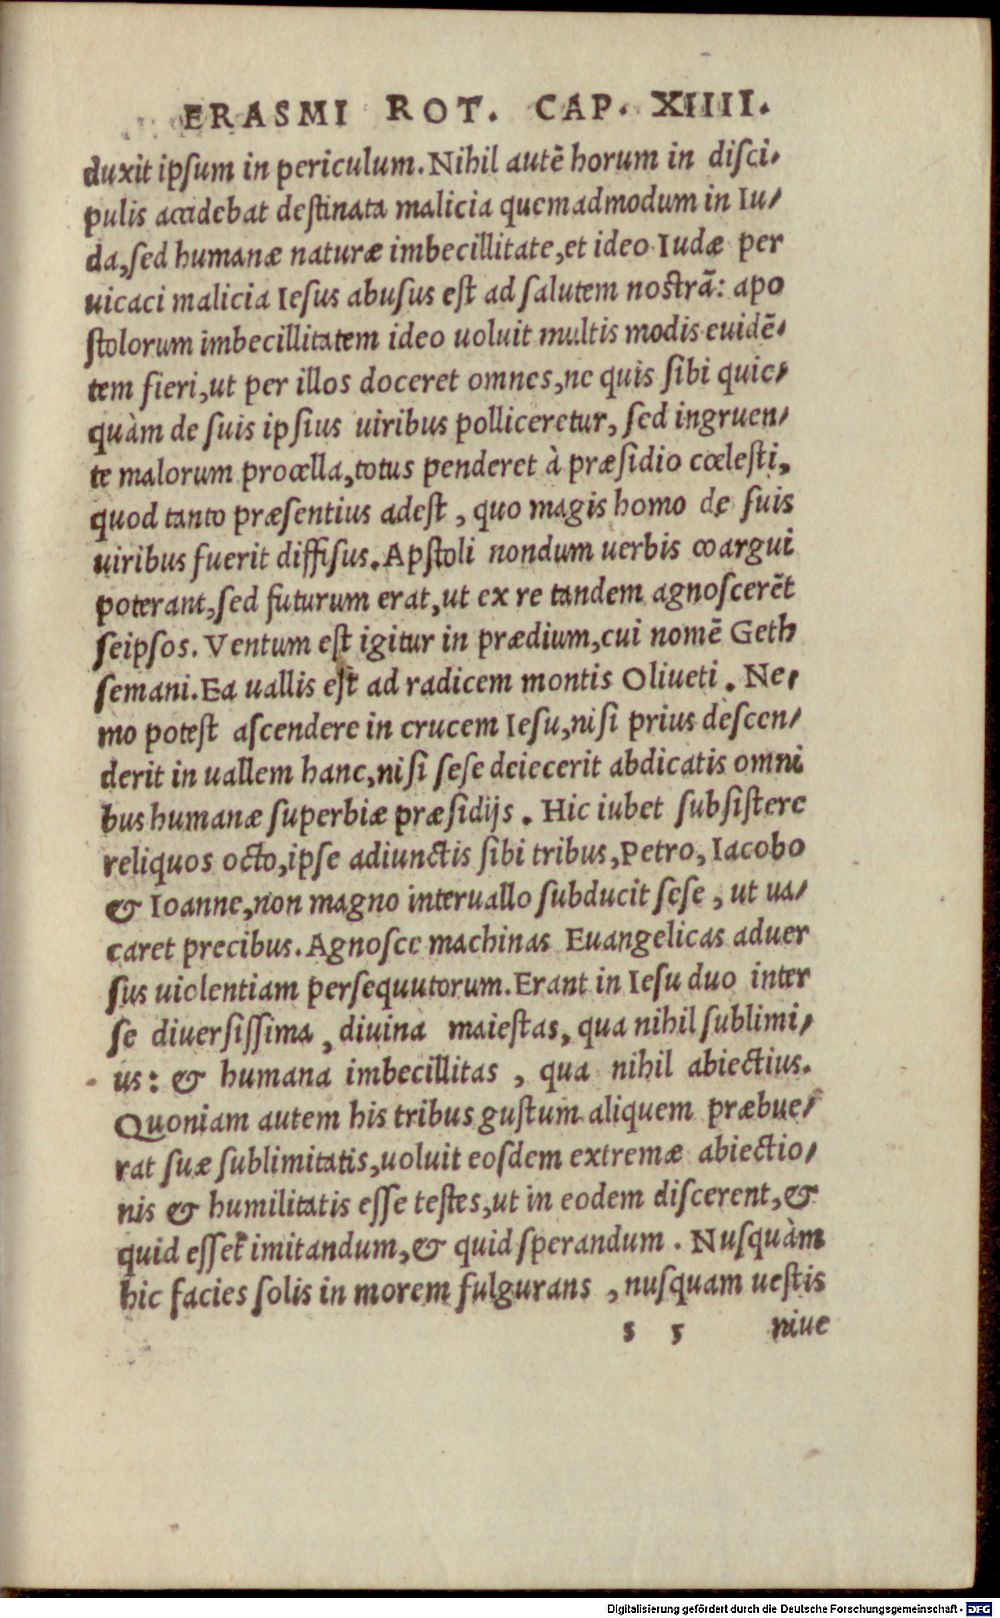 ERASMI ROT. CAP. XIIII.
duxit ipsum in periculum. Nihil autē horum in disci-
pulis accidebat destinata malicia quemadmodum in Iu-
da, sed humanæ naturæ imbecillitate, et ideo Iudæ per
uicaci malicia Iesus abusus est ad salutem nostrā: apo
stolorum imbecillitatem ideo uoluit multis modis euidē-
tem fieri, ut per illos doceret omnes, ne quis sibi quic-
quàm de suis ipsius uiribus polliceretur, sed ingruen-
te malorum procella, totus penderet à præsidio cœlesti,
quod tanto præsentius adest, quo magis homo de suis
uiribus fuerit diffisus. Apstoli nondum uerbis coargui
poterant, sed futurum erat, ut ex re tandem agnoscerēt
seipsos. Ventum est igitur in prædium, cui nomē Geth
semani. Ea uallis est ad radicem montis Oliueti. Ne-
mo potest ascendere in crucem Iesu, nisi prius descen-
derit in uallem hanc, nisi sese deiecerit abdicatis omni
bus humanæ superbiæ præsidijs. Hic iubet subsistere
reliquos octo, ipse adiunctis sibi tribus, Petro, Iacobo
& Ioanne, non magno interuallo subducit sese, ut ua-
caret precibus. Agnosce machinas Euangelicas aduer
sus uiolentiam persequutorum. Erant in Iesu duo inter
se diuersissima, diuina maiestas, qua nihil sublimi-
us: & humana imbecillitas, qua nihil abiectius.
Quoniam autem his tribus gustum aliquem præbue-
rat suæ sublimitatis, uoluit eosdem extremæ abiectio-
nis & humilitatis esse testes, ut in eodem discerent, &
quid esset imitandum, & quid sperandum. Nusquàm
hic facies solis in morem fulgurans, nusquam uestis
s 5 niue
Digitalisierung gefördert durch die Deutsche Forschungsgemeinschaft - DFG